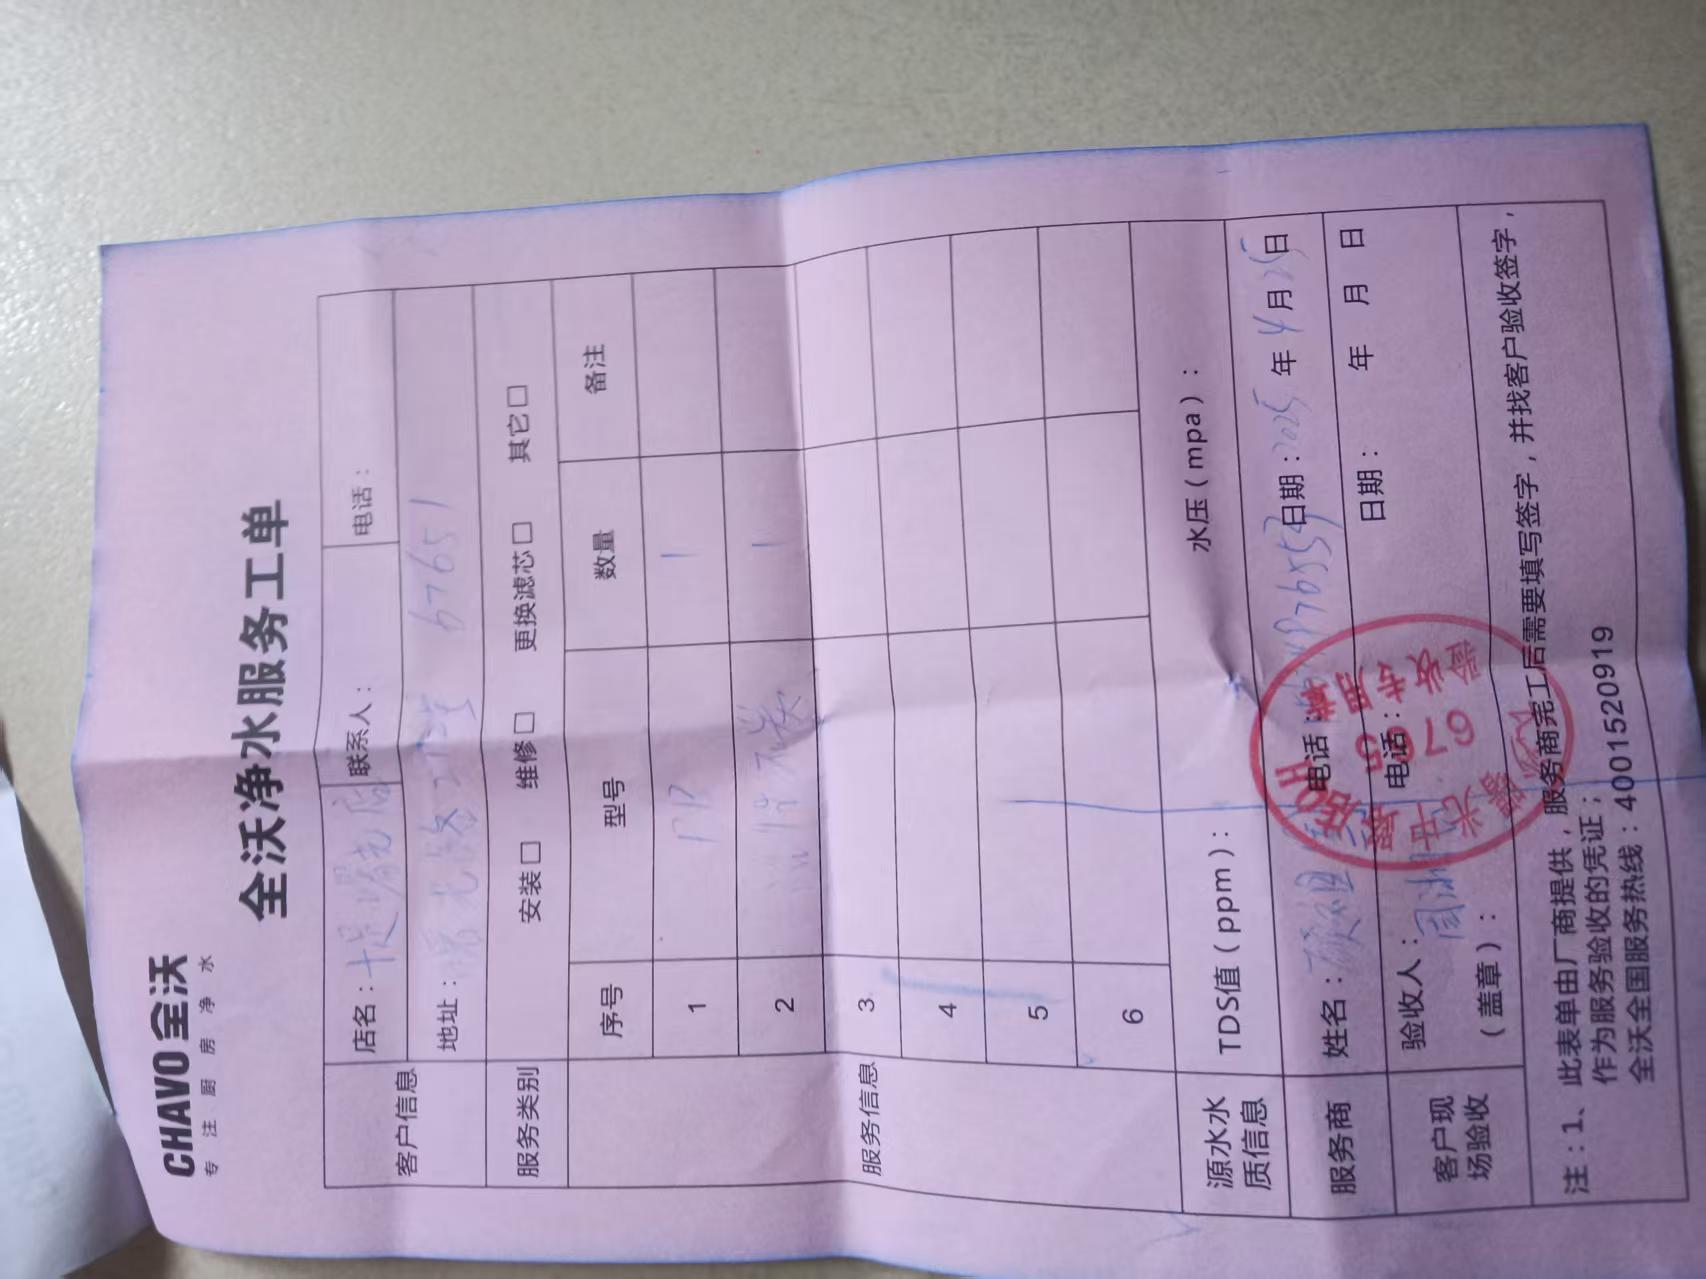 CHAVO 全沃
专注厨房净水
全沃净水服务工单
客户信息
店名： 曙光店 联系人： 电话：
地址：曙光路 67651
服务类别 安装□ 维修□ 更换滤芯□ 其它□
服务信息
序号 型号 数量 备注
1 PP 1
2 1
3
4
5
6
源水水质信息 TDS值（ppm）： 水压（mpa）：
服务商 姓名： 电话： 日期：2025年4月25日
客户现场验收 验收人： 电话： 日期： 年 月 日
（盖章）：
验收专用章
注：1、此表单由厂商提供，服务商完工后需要填写签字，并找客户验收签字，
作为服务验收的凭证；
全沃全国服务热线：4001520919